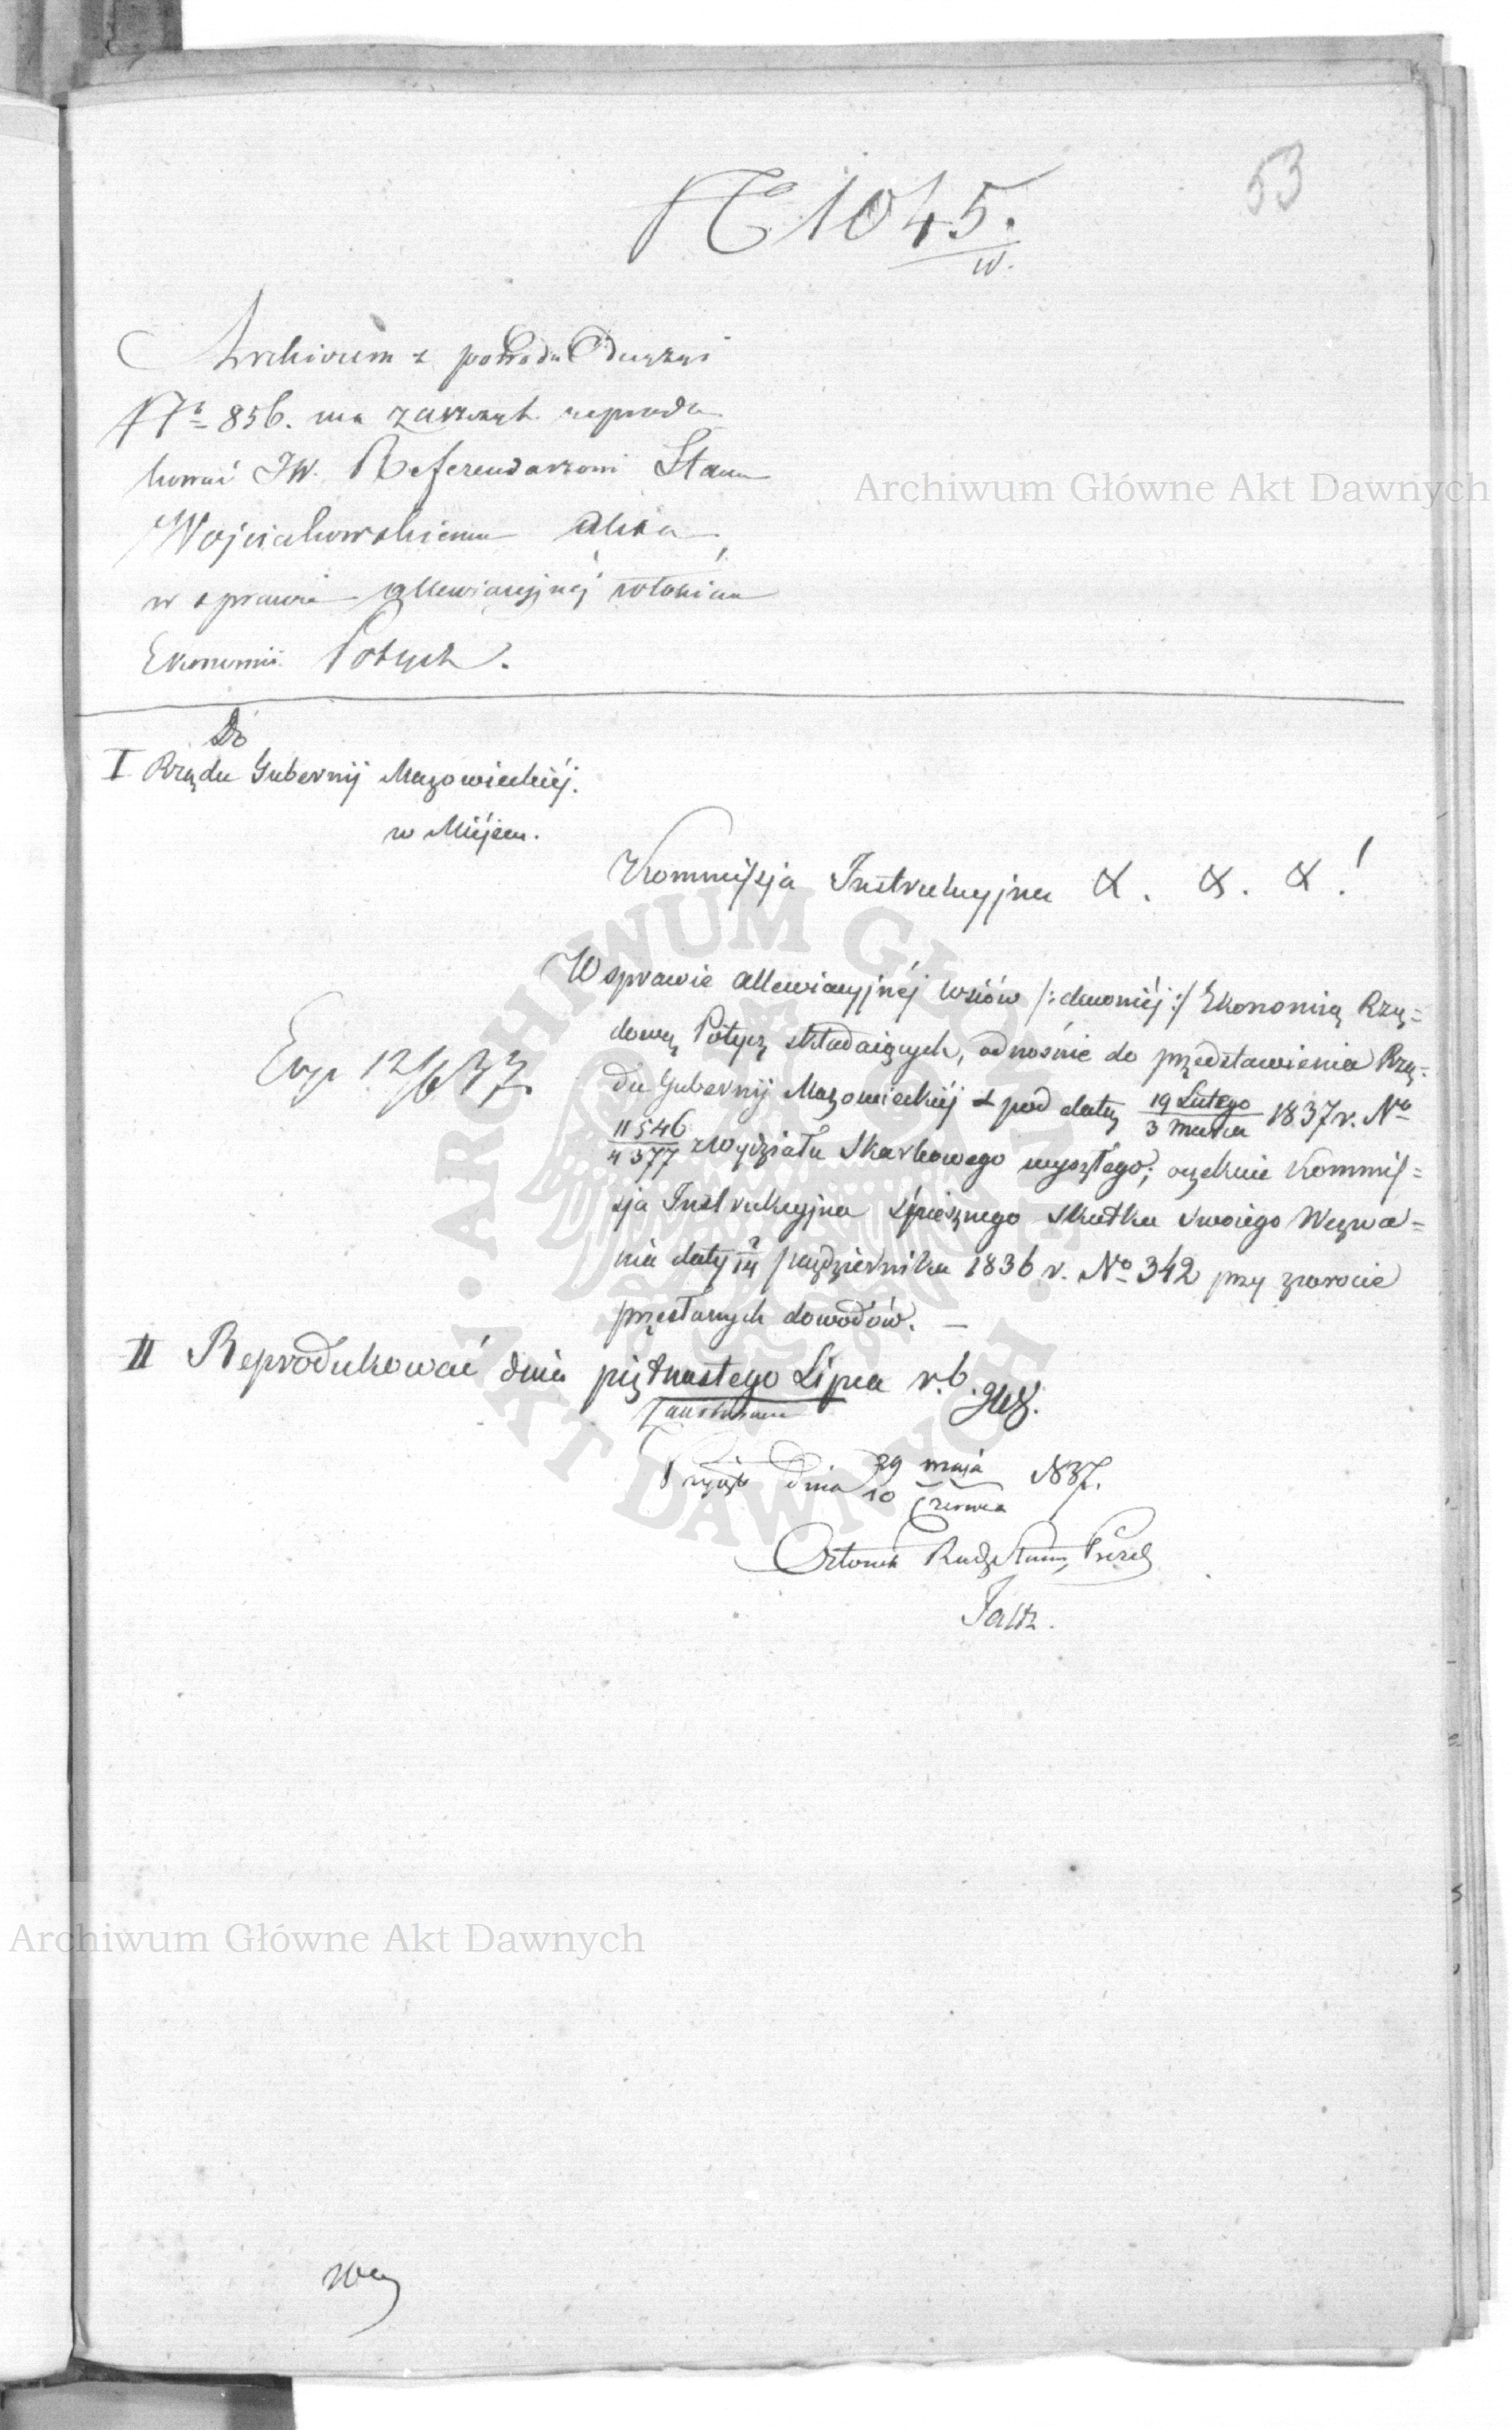 53
No 1045.
w.
Archivum z powodu Decyzyi
No 856. ma zaszczyt reprodu
kować JW. Referendarzowi Stanu
Wojciechowskiemu akta
w sprawie allewiacyjnéj włościan
Ekonomii Potycz.
Do
I Rządu Gubernij Mazowieckiéj.
w Miéjscu.
Kommissja Instrukcyjna &. &. &!
W sprawie allewiacyjnéj wsiów /: :/ Ekonomią Rzą=
dową Potycz składaiących, odnośnie do przedstawienia Rzą=
du Gubernij Mazowieckiéj z pod daty 19 Lutego / 3 Marca 1837 r. No
11546 / 4377 z Wydziału Skarbowego wyszłego; oczekuie Kommis=
sja Instrukcyjna śpiesznego skutku swoiego Wezwa=
nia daty 2/14 października 1836 r. No 342 przy zwrocie
przesłanych dowodów. —
Exp 12/6 37.
II Reprodukować dnia piętnastego Lipca r. b.
Przyjęto dnia 29 maja / 10 Czerwca 1837.
Członek Rady Stanu, Prezes
Faltz.
Archiwum Główne Akt Dawnych
Archiwum Główne Akt Dawnych
· ARCHIWUM GŁÓWNE ·
AKT DAWNYCH